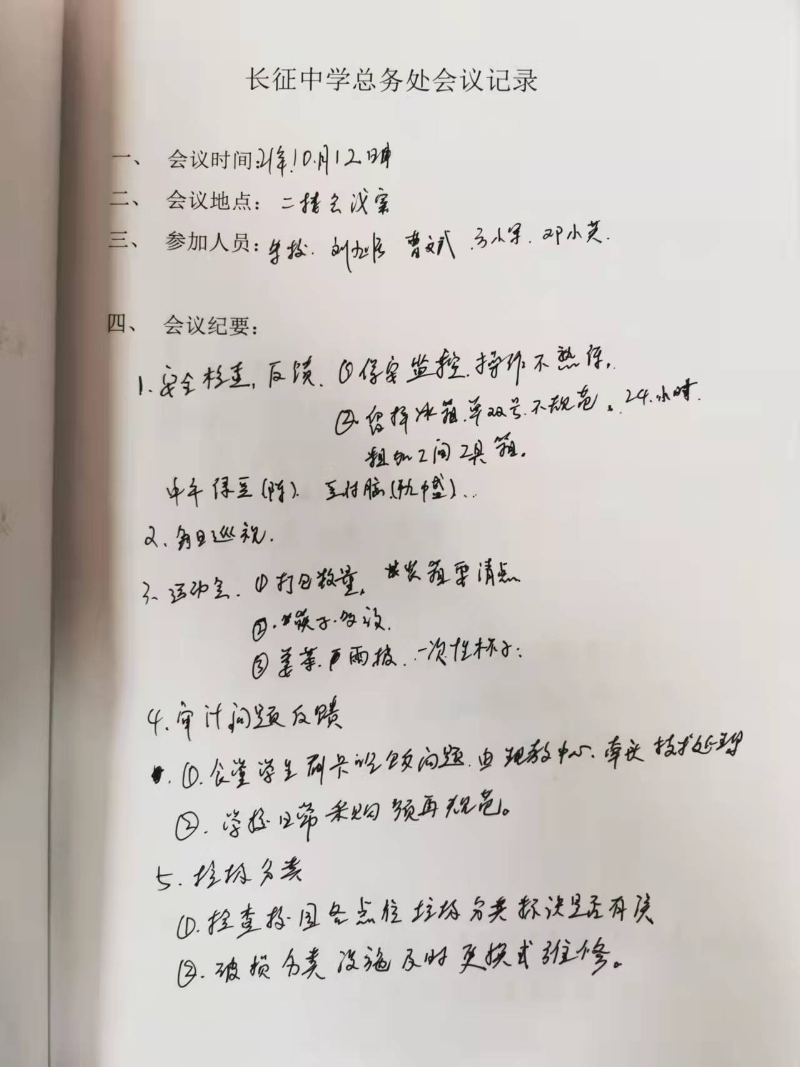 长征中学总务处会议记录
一、 会议时间:21年10月12日
二、 会议地点: 二楼会议室
三、 参加人员: 曹文斌 邓小英.
四、 会议纪要:
1. 安全检查, 反馈. ①保安监控.操作不熟练.
②留样冰箱.单双号.不规范。24小时.
粗加工间工具箱.
中午
2. 每日巡视.
3. 运动会. ①打包数量, 装箱要清点
②.筷子.
③姜茶. 雨披. 一次性杯子:
4. 审计问题反馈
①.食堂学生刷卡 问题.由现教中心.牵头 技术处理
②. 学校日常采购须再规范。
5. 垃圾分类
①.检查校园各点位垃圾分类标识是否有误
②.破损分类设施及时更换或维修。